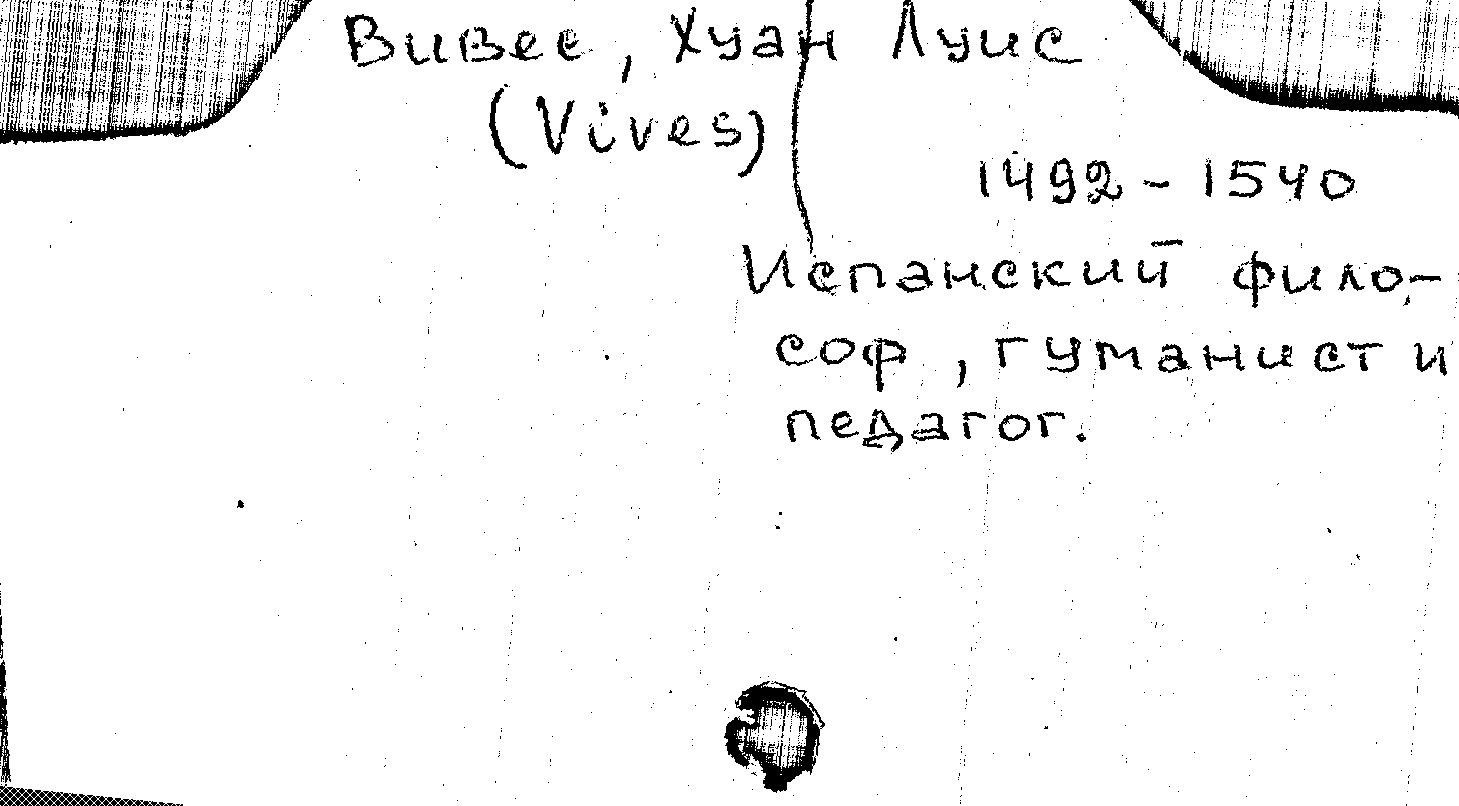 Вивес, Хуан Луис
(Vives)
1492 - 1540
Испанский фило-
соф, гуманист и
педагог.